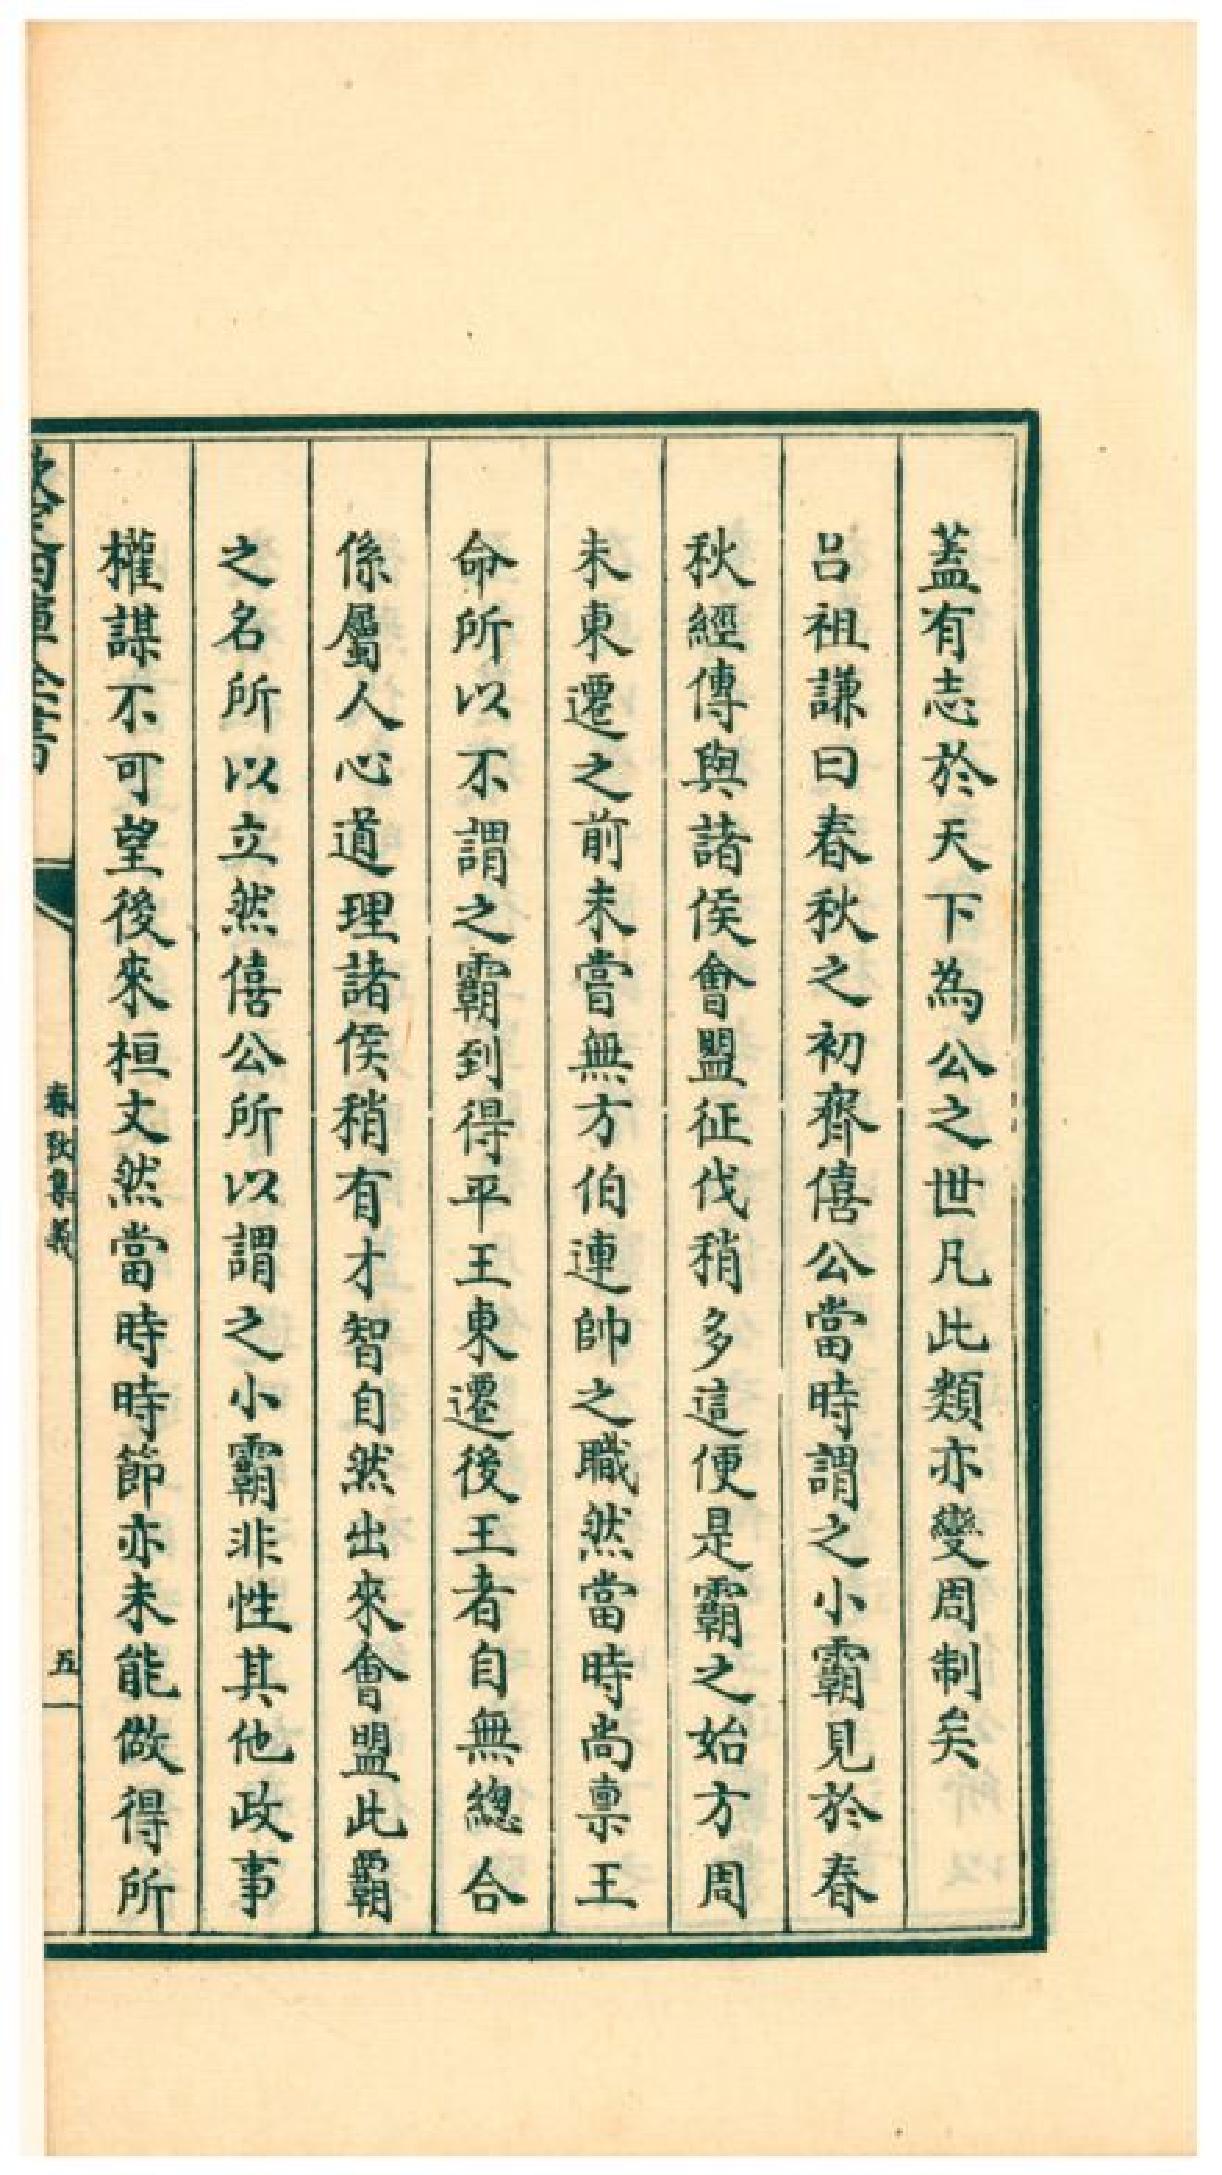 蓋有志於天下為公之世凡此類亦變周制矣
吕祖謙曰春秋之初齊僖公當時謂之小霸見於春
秋經傳與諸侯會盟征伐稍多這便是霸之始方周
未東遷之前未嘗無方伯連帥之職然當時尚禀王
命所以不謂之霸到得平王東遷後王者自無總合
係屬人心道理諸侯稍有才智自然出來會盟此霸
之名所以立然僖公所以謂之小霸非性其他政事
權謀不可望後來桓文然當時時節亦未能做得所
欽定四庫全書
春秋集義
五